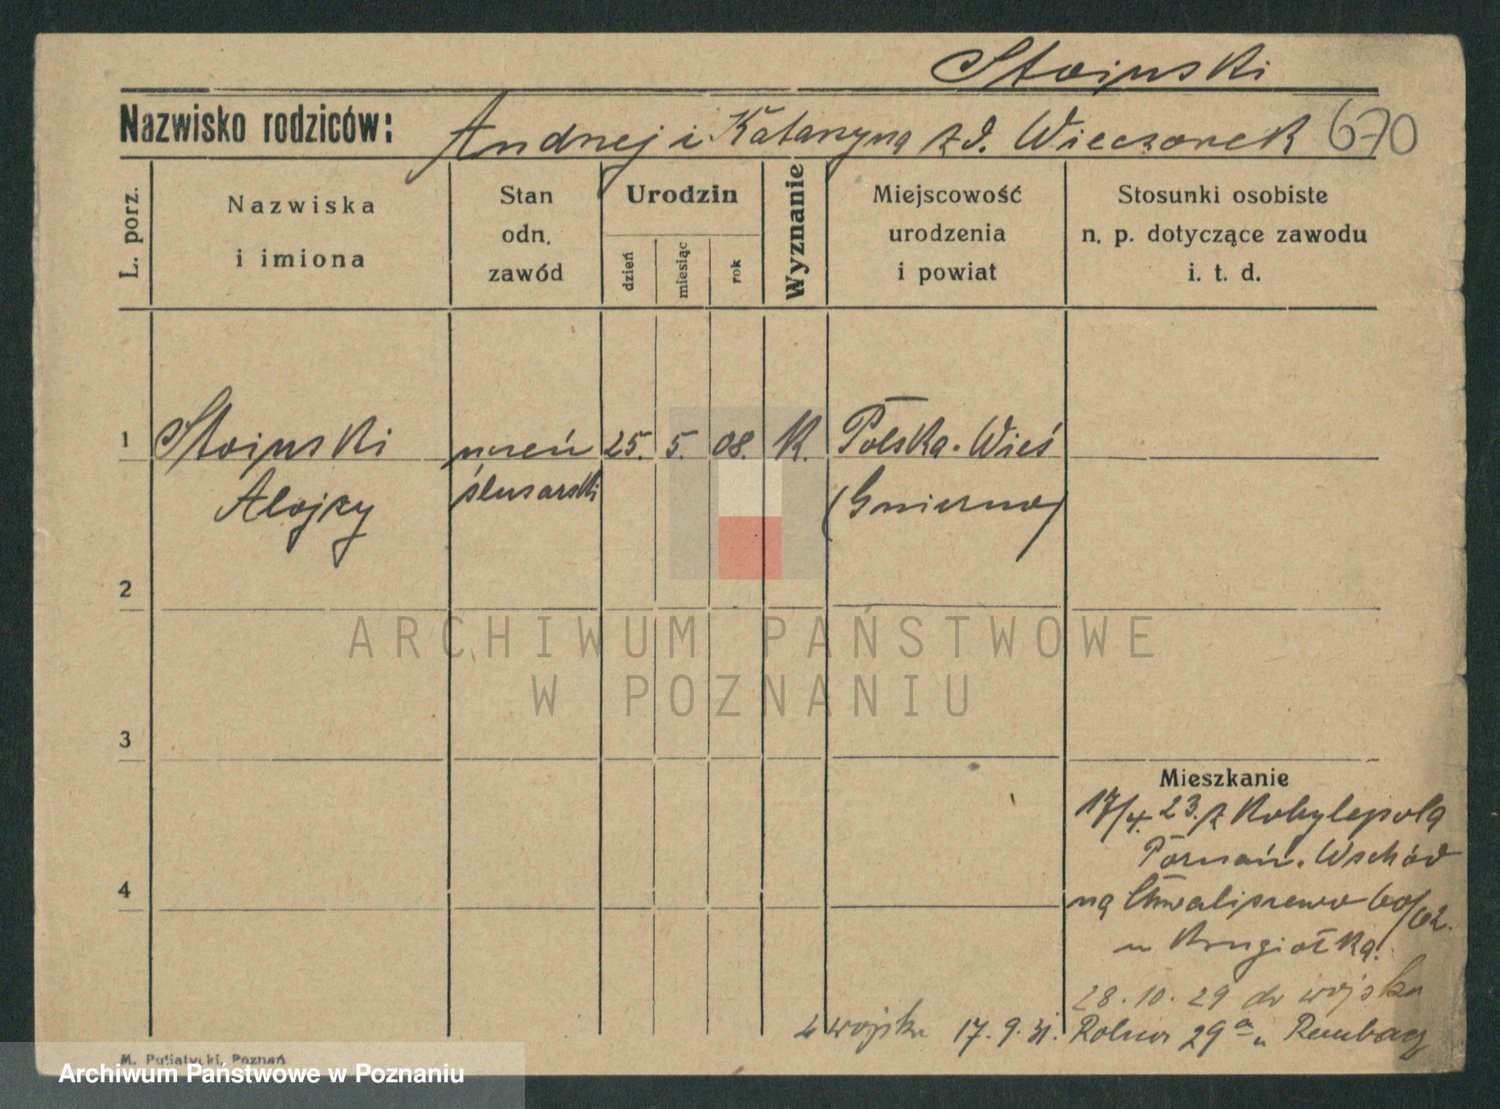 Stojnski
Nazwisko rodziców: Andrzej i Katarzyna z d. Wieczorek 670
L. porz.
Nazwiska
i imiona
Stan
odn.
zawód
Urodzin
dzień
miesiąc
rok
Wyznanie
Miejscowość
urodzenia
i powiat
Stosunki osobiste
n. p. dotyczące zawodu
i. t. d.
1 Stojnski uczeń 25. 5. 08. K. Polska-Wieś
Alojzy ślusarski (Gniezno)
2
ARCHIWUM PAŃSTWOWE
W POZNANIU
3
Mieszkanie
17/4. 23. z Kobylepola
Poznań. Wschód
4
na Chwaliszewo 60/62.
u
28.10.29 do wojska
z wojska 17.9.31. Rolna 29a u
M. Putiatycki, Poznań
Archiwum Państwowe w Poznaniu